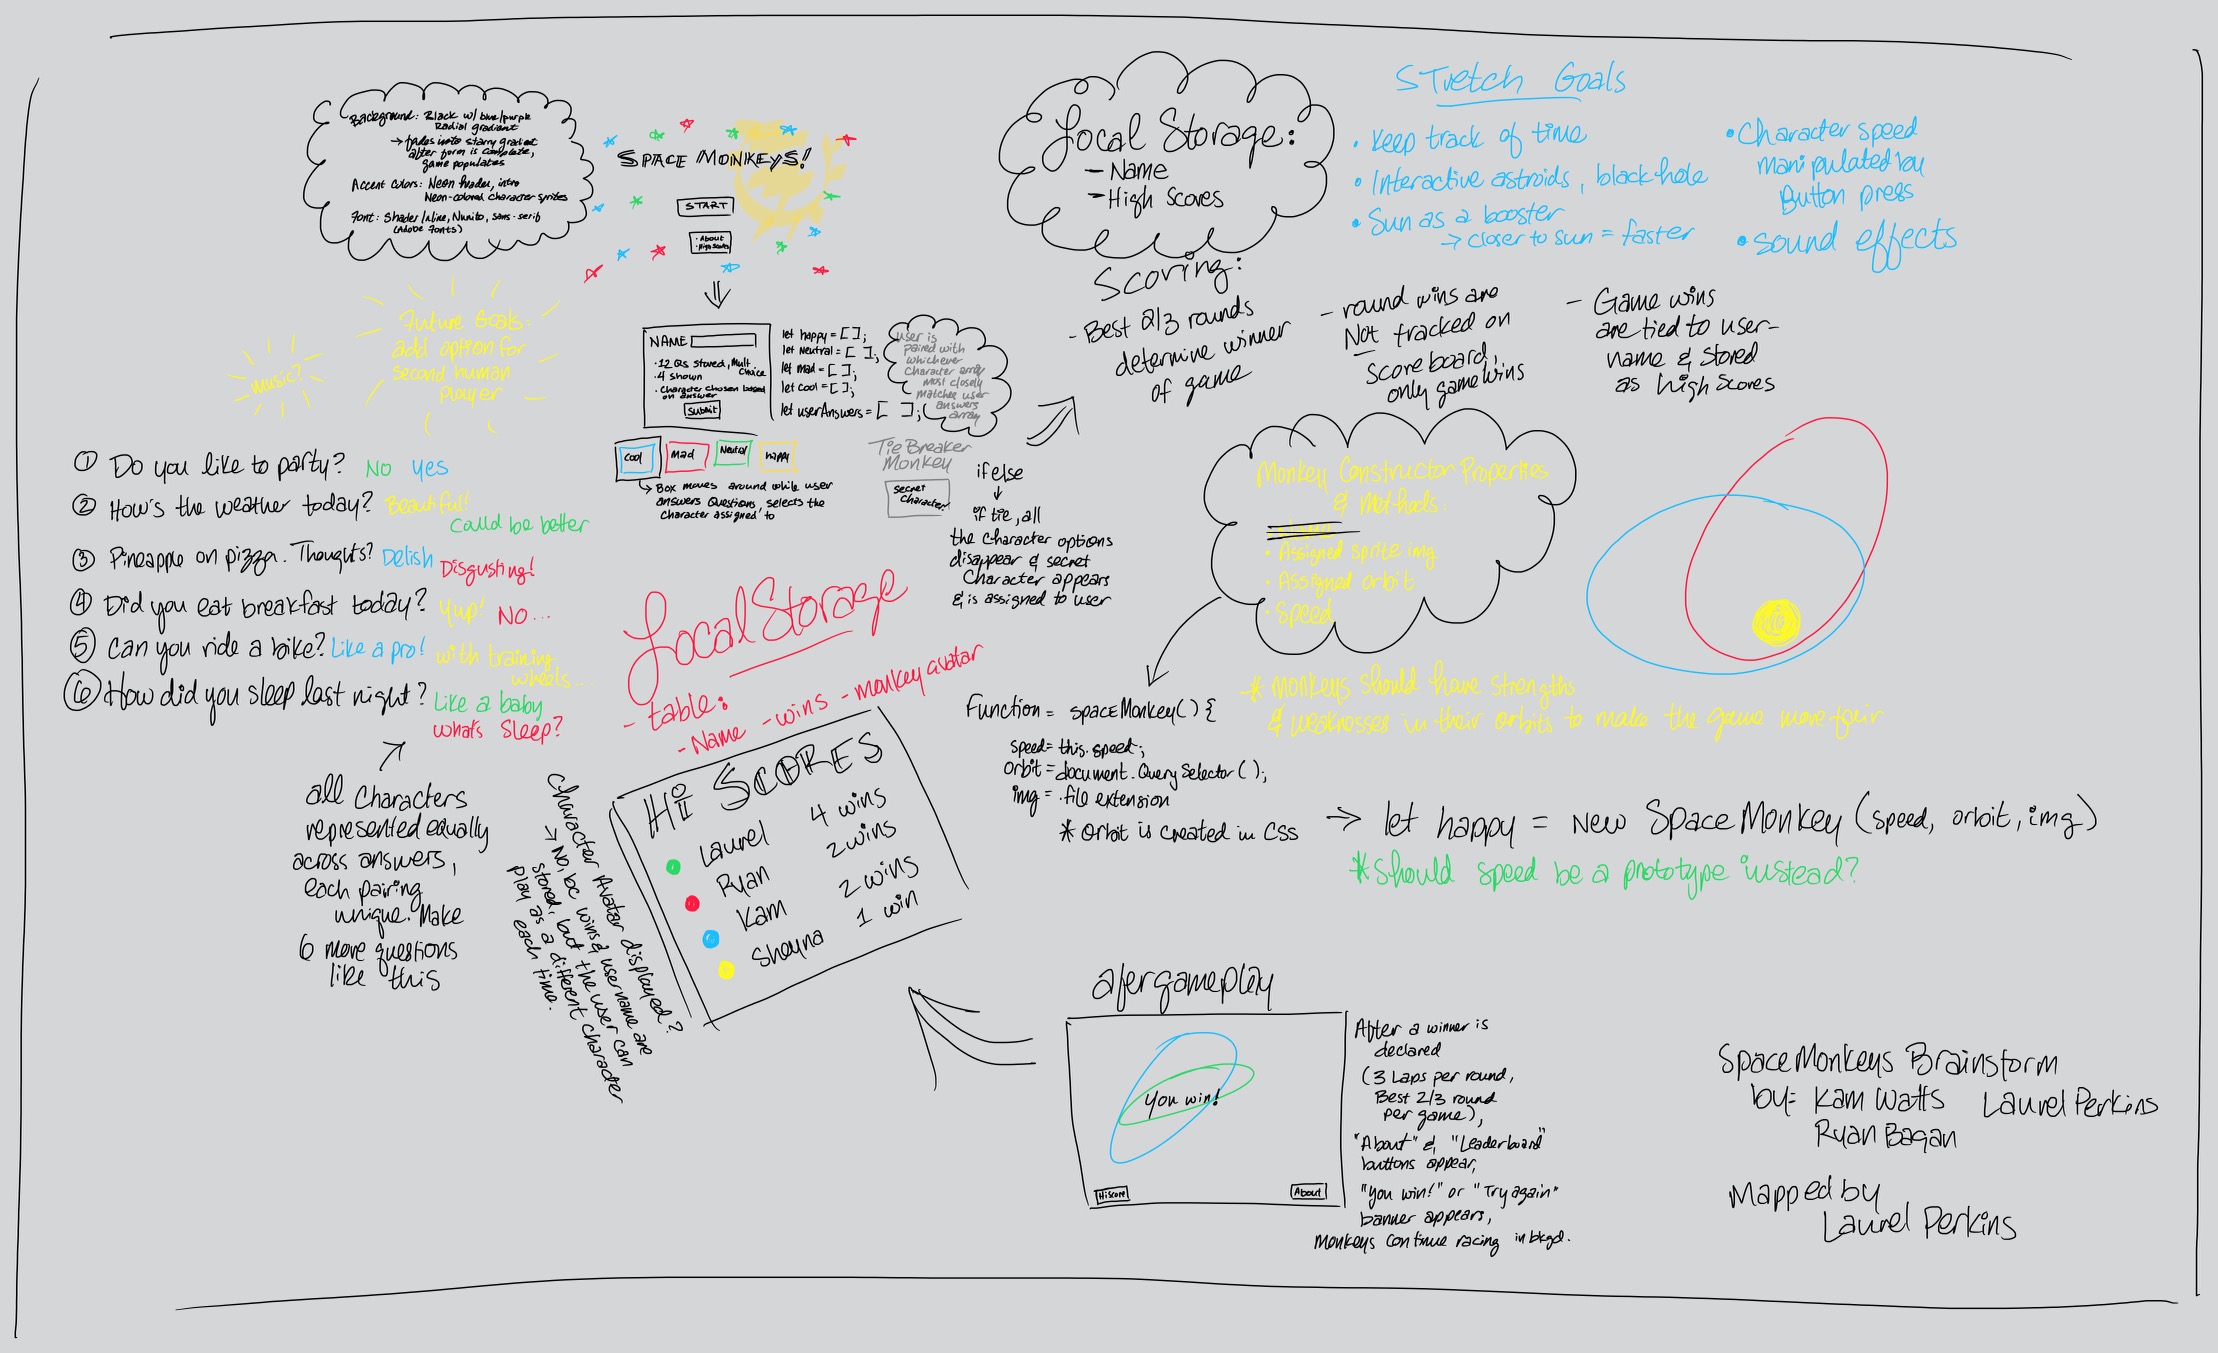 Background: Black w/ blue/purple
Radial gradient
→ fades into starry gradient
after form is complete,
game populates
Accent Colors: Neon header, intro
Neon-colored character sprites
Font: Shader, Nunito, sans-serif
(Adobe Fonts)
SPACE MONKEYS!
START
· About
· High Scores
Local Storage:
- Name
- High Scores
STretch Goals
• Keep track of time
• Interactive astroids, black hole
• Sun as a booster
→ closer to sun = faster
• Character speed
manipulated by
Button press
• Sound effects
Future Goals:
add option for
second human
Player
music?
NAME
· 12 Qs stored, Mult.
Choice
· 4 shown
· Character chosen based
on answer
Submit
let happy = [ ];
let Neutral = [ ];
let mad = [ ];
let cool = [ ];
let userAnswers = [ ];
user is
paired with
whichever
character array
most closely
matches user
answers
array
Cool
Mad
Neutral
Happy
↳ Box moves around while user
answers Questions, selects the
Character assigned to
Tie Breaker
Monkey
secret
Character
if else
↓
if tie, all
the character options
disappear & secret
Character appears
& is assigned to user
Scoring:
- Best 2/3 rounds
determine winner
of game
- round wins are
Not tracked on
Scoreboard,
only game wins
- Game wins
are tied to user-
name & stored
as high scores
① Do you like to party? No yes
② How's the weather today? Beautiful!
Could be better
③ Pineapple on pizza. Thoughts? Delish Disgusting!
④ Did you eat breakfast today? Yup! No...
⑤ Can you ride a bike? Like a pro! with training
wheels...
⑥ How did you sleep last night? Like a baby
What's Sleep?
all Characters
represented equally
across answers,
each pairing
unique. Make
6 more questions
like this
Local Storage
- table:
- Name - wins - monkey avatar
Hi SCORES
Laurel 4 wins
Ryan 2 wins
Kam 2 wins
Shayna 1 win
Character Avatar displayed?
→ No, bc wins & username are
stored, but the user can
play as a different character
each time.
Monkey Constructor Properties
& Methods:
• Assigned sprite img
• Assigned orbit
• Speed
* Monkeys should have strengths
& weaknesses in their orbits to make the game more fair
Function = spaceMonkey() {
speed = this.speed;
orbit = document.QuerySelector();
img = .file extension
* Orbit is created in CSS
→ let happy = New SpaceMonkey (speed, orbit, img)
* Should speed be a prototype instead?
afergameplay
You win!
Hiscore
About
After a winner is
declared
(3 Laps per round,
Best 2/3 round
per game),
"About" & "Leaderboard"
buttons appear,
"You win!" or "Try again"
banner appears,
Monkeys continue racing in bkgd.
SpaceMonkeys Brainstorm
by: Kam Watts Laurel Perkins
Ryan Bagan
Mapped by
Laurel Perkins